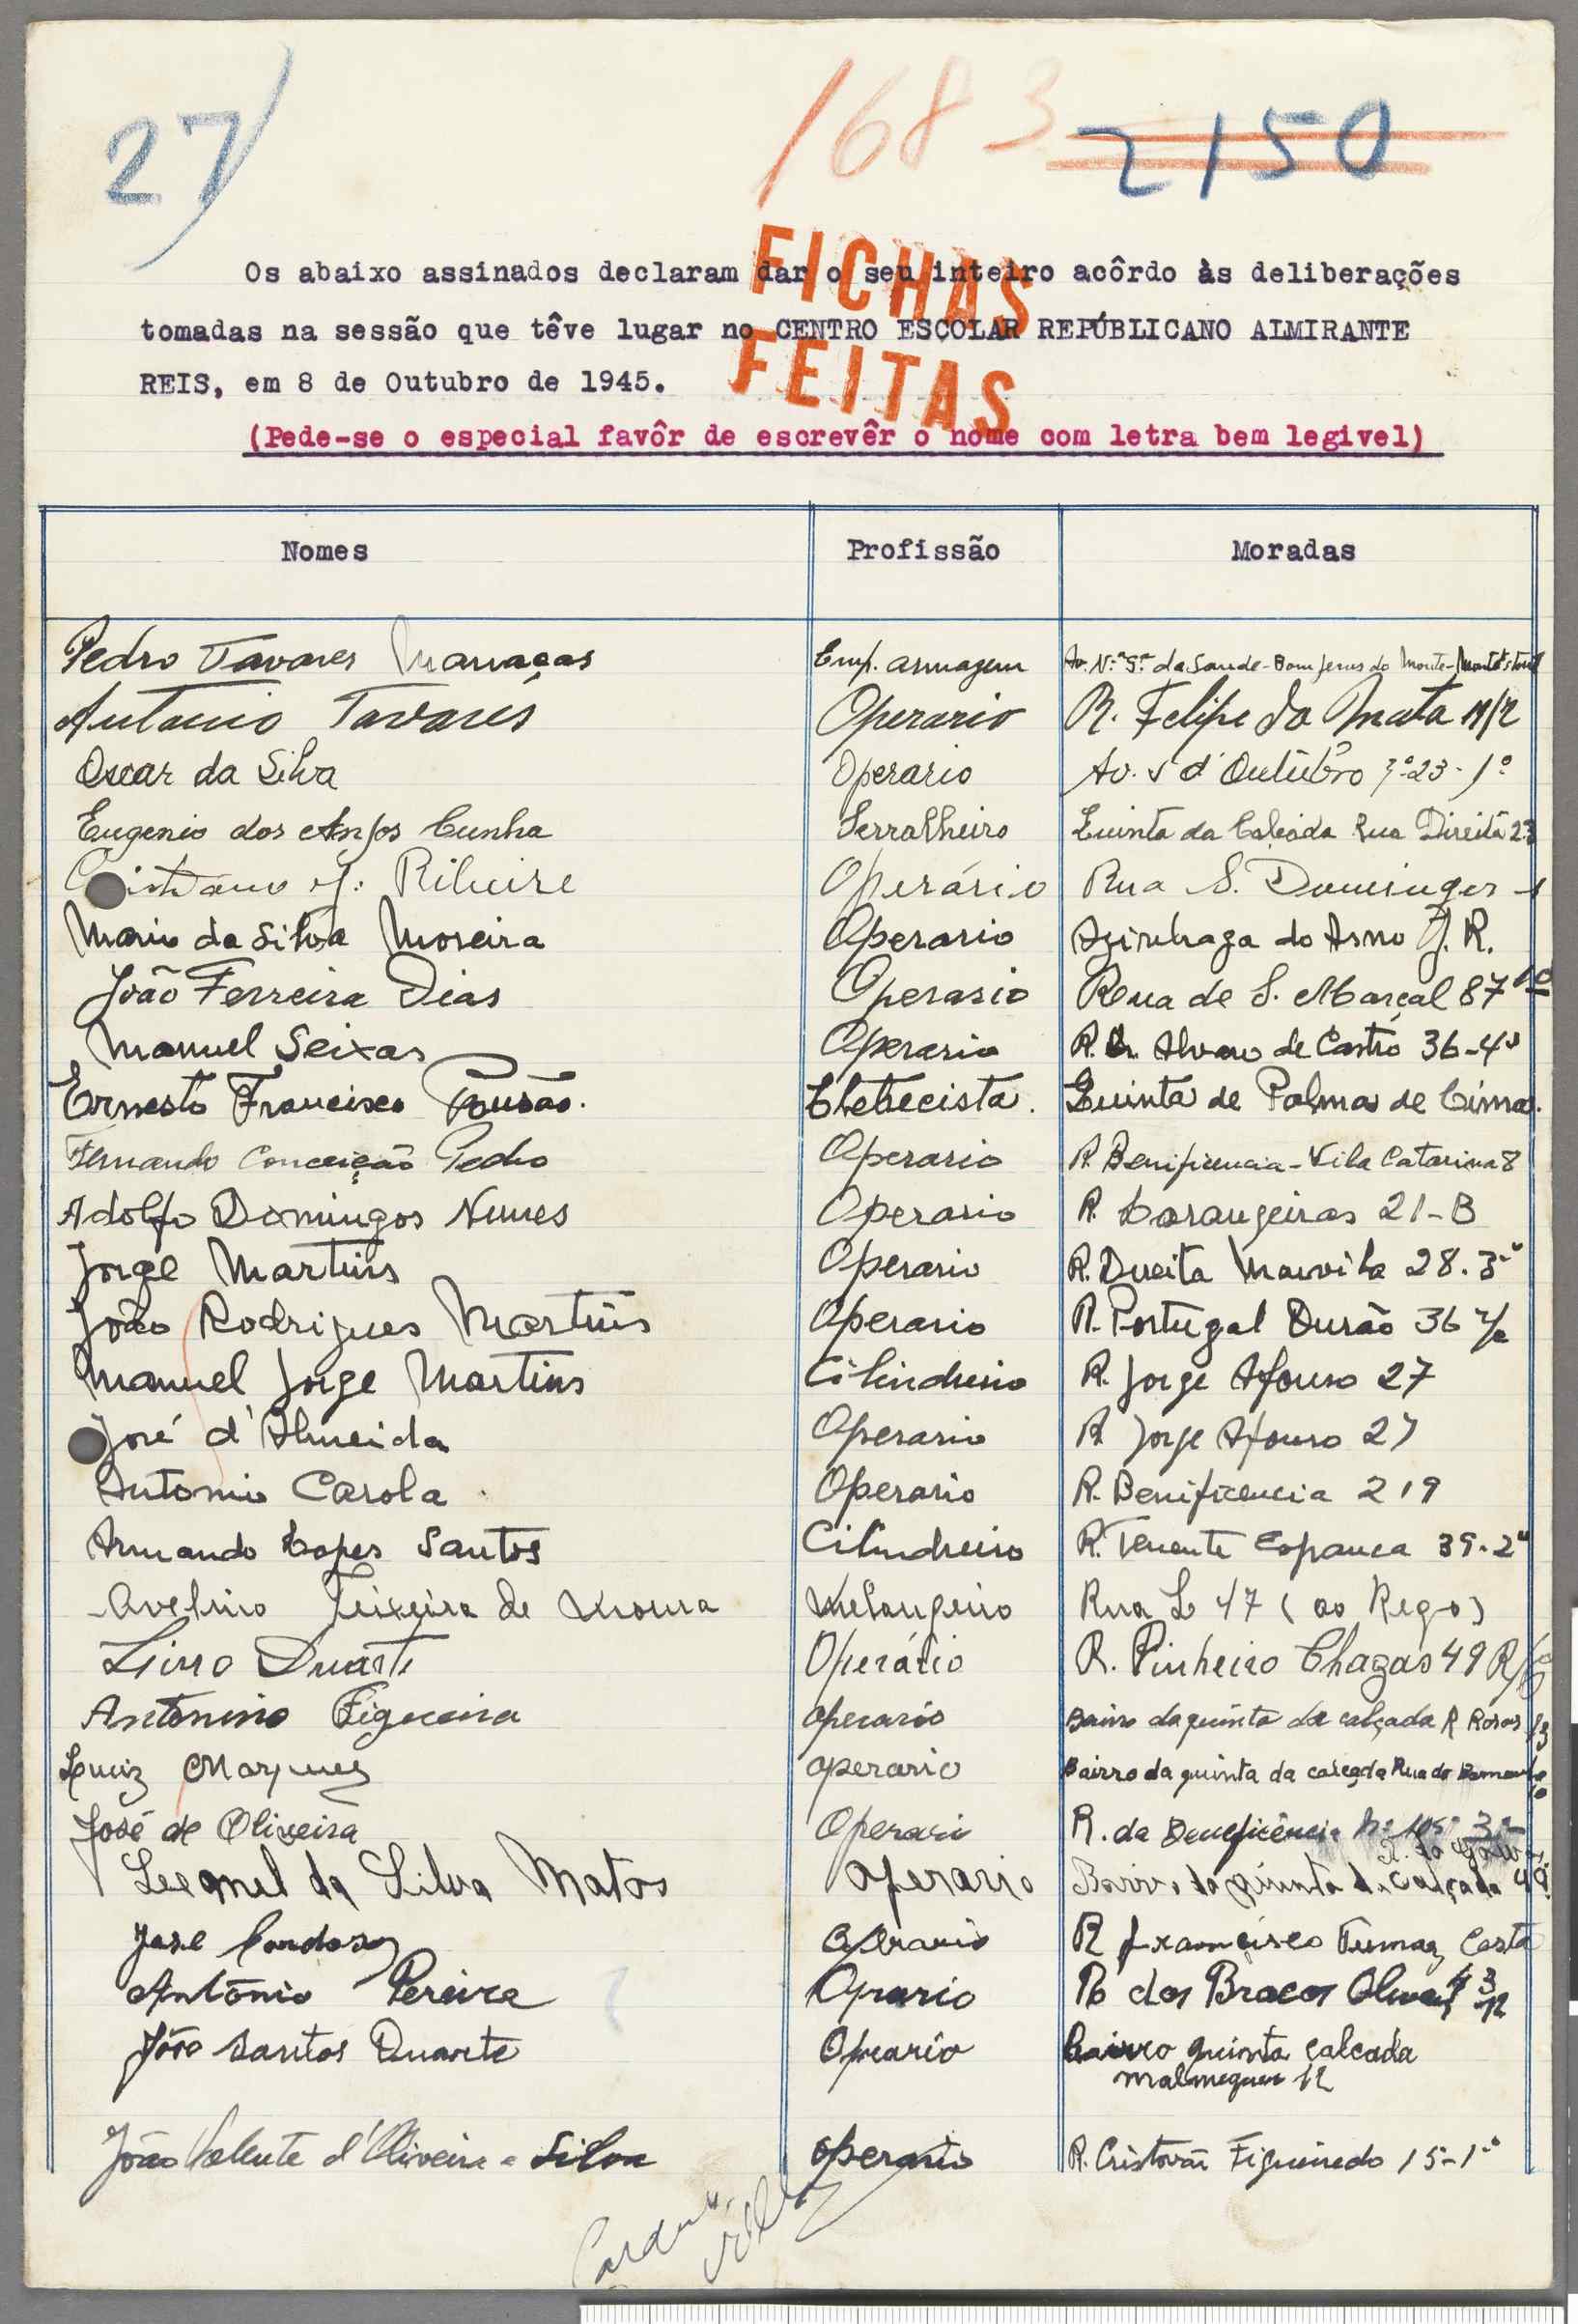 27
1683 2150
FICHAS
FEITAS
Os abaixo assinados declaram dar o seu inteiro acôrdo às deliberações
tomadas na sessão que têve lugar no CENTRO ESCOLAR REPÚBLICANO ALMIRANTE
REIS, em 8 de Outubro de 1945.
(Pede-se o especial favôr de escrevêr o nome com letra bem legivel)
Nomes Profissão Moradas
Pedro Tavares Manaças Emp. armagem Av. N.ª S.ª da Saude - Bom Jesus do Monte -
Antonio Tavares Operario R. Felipe da Mata
Oscar da Silva Operario Av. 5 d'Outubro 23-1º
Eugenio dos Anjos Cunha Serralheiro Quinta da Calçada Rua Direita 23
J. Ribeiro Operário Rua S. Domingos
Mario da Silva Moreira Operario Azinhaga do Asno J. R.
João Ferreira Dias Operario Rua de S. Marçal 87 1º
Manuel Seixas Operario R. Alvaro de Castro 36-4º
Ernesto Francisco Pousão. Quinta de Palma de Cima.
Fernando Conceição Pedro Operario R. Benificencia - Vila Catarina 8
Adolfo Domingos Nunes Operario R. Larangeiras 21-B
Jorge Martins Operario R. Direita Marvila 28. 3º
João Rodrigues Martins Operario R. Portugal Durão 36
Manuel Jorge Martins Cilindreiro R. Jorge Afonso 27
José d'Almeida Operario R. Jorge Afonso 27
Antonio Carola Operario R. Benificencia 219
Armando Lopes Santos Cilindreiro R. Tenente Espanca 39-2º
Avelino Teixeira de Moura Rua L 47 (ao Rego)
Lino Duarte Operário R. Pinheiro Chagas 49 R/C
Antonino Figueira operario Bairro da quinta da calçada R Rosas 13
Luiz Marques operario Bairro da quinta da calçada Rua do
José de Oliveira Operari R. da Beneficência nº 105 3º
Leonel da Silva Matos operario Bairro da quinta da Calçada
Jose Cardoso operario R francisco Tumaz Costa
António Pereira Oprario R dos Bracos
João Santos Duarte Opeario Bairro quinta calcada
malmequer 12
João Valente d'Oliveira e Silva operario R. Cristovão Figueiredo 15-1º